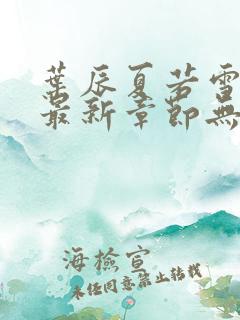 葉辰夏若雪
最新章節無
海檢宣
未任同意禁止轉載